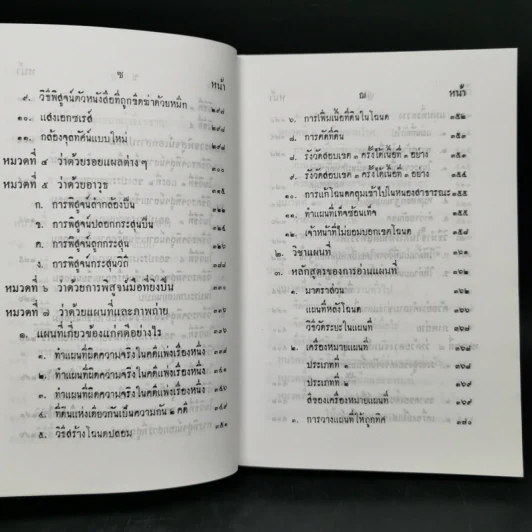 ซ
หน้า
๙. วิธีพิสูจน์ตัวหนังสือที่ถูกขีดฆ่าด้วยหมึก ๒๙๘
๑๐. แสงเอกซเรส์ ๒๙๘
๑๑. กล้องจุลทัศน์แบบใหม่ ๒๙๙
หมวดที่ ๔ ว่าด้วยรอยแผลต่างๆ
หมวดที่ ๕ ว่าด้วยอาวุธ ๓๑๕
ก. การพิสูจน์ลำกล้องปืน ๓๒๒
ข. การพิสูจน์ปลอกกระสุนปืน
ค. การพิสูจน์ลูกกระสุน ๓๒๖
ง. การพิสูจน์กระสุนวิถี
หมวดที่ ๖ ว่าด้วยการพิสูจน์มือที่ยิงปืน ๓๓๐
หมวดที่ ๗ ว่าด้วยแผนที่และภาพถ่าย
๑. แผนที่เกี่ยวข้องแก่คดีอย่างไร ๓๓๖
๑. ทำแผนที่ผิดความจริงในคดีแพ่งเรื่องหนึ่ง
๒. ทำแผนที่ผิดความจริงในคดีแพ่งเรื่องหนึ่ง
๓. ทำแผนที่ผิดความจริงในคดีแพ่งเรื่องหนึ่ง ๓๔๖
๔. ที่ดินแห่งเดียวกันเป็นความกัน ๒ คดี ๓๔๙
๕. วิธีสร้างโฉนดปลอม ๓๕๑
ฌ
หน้า
๖. การเพิ่มเนื้อที่ดินในโฉนด ๓๕๒
๗. การคัดที่ดิน ๓๕๓
๘. รังวัดสอบเขต ๓ ครั้งได้เนื้อที่ ๓ อย่าง ๓๕๔
๙. รังวัดสอบเขต ๓ ครั้งได้เนื้อที่ ๓ อย่าง ๓๕๔
๑๐. การแก้โฉนดคลุมเข้าไปในหนองสาธารณะ ๓๕๕
๑๑. ทำแผนที่เท็จซ้อนเท็จ ๓๕๕
๑๒. เจ้าหน้าที่ไม่ยอมบอกเขตโฉนด ๓๕๘
๒. วิชาแผนที่ ๓๖๒
๓. หลักสูตรของการอ่านแผนที่ ๓๖๒
๑. มาตราส่วน ๓๖๒
แผนที่หลังโฉนด ๓๖๘
วิธีวัดระยะในแผนที่
๒. เครื่องหมายแผนที่ ๓๖๘
ประเภทที่ ๑ ๓๖๘
ประเภทที่ ๒ ๓๖๙
สีของเครื่องหมายแผนที่ ๓๖๙
๓. การวางแผนที่ให้ถูกทิศ ๓๗๐